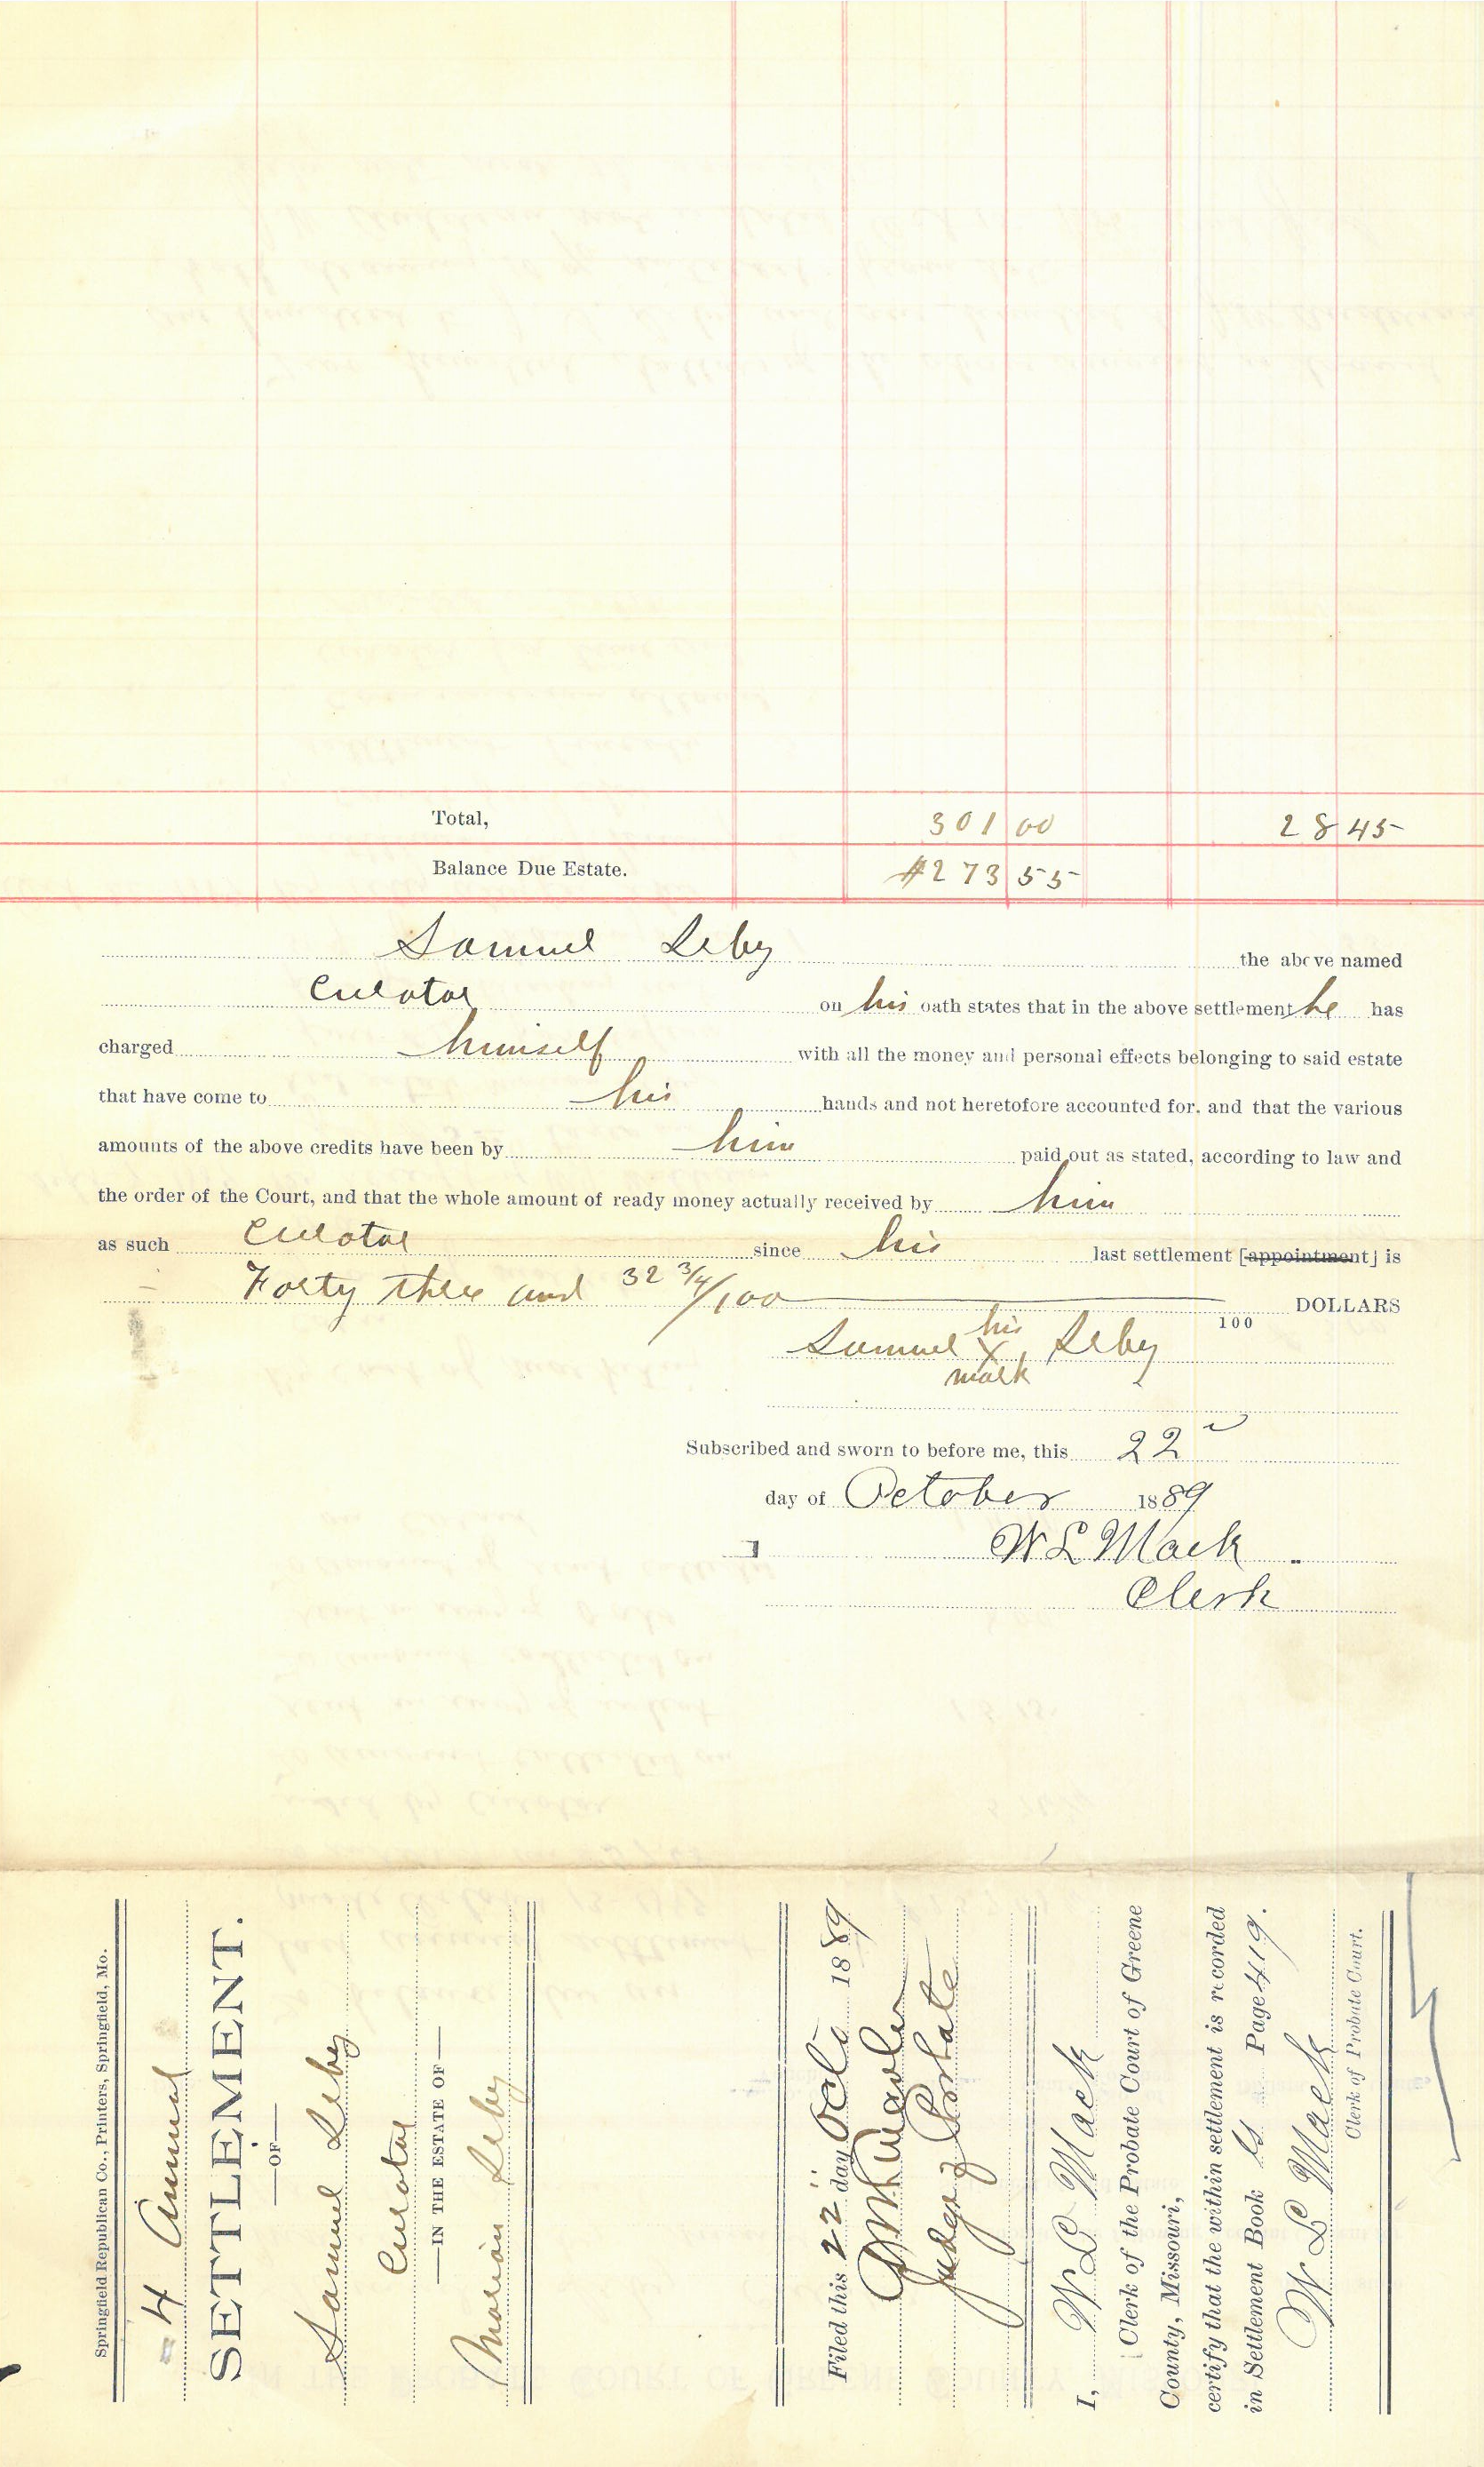 Total, 301 00 28 45
Balance Due Estate. #273 55
Samuel Leby the above named
Curator on his oath states that in the above settlement he has
charged himself with all the money and personal effects belonging to said estate
that have come to his hands and not heretofore accounted for, and that the various
amounts of the above credits have been by him paid out as stated, according to law and
the order of the Court, and that the whole amount of ready money actually received by him
as such Curator since his last settlement [appointment] is
Forty three and 32 3/4/100 100 DOLLARS
Samuel his X mark Leby
Subscribed and sworn to before me, this 22
day of October 1889
W L Mack
Clerk
Springfield Republican Co., Printers, Springfield, Mo.
4 Annual
SETTLEMENT.
OF
Samuel Leby
Curator
IN THE ESTATE OF
Marion Leby
Filed this 22 day Oct 1889
Judge of Probate
I, W L Mack
Clerk of the Probate Court of Greene
County, Missouri,
certify that the within settlement is recorded
in Settlement Book Page 419.
W L Mack
Clerk of Probate Court.